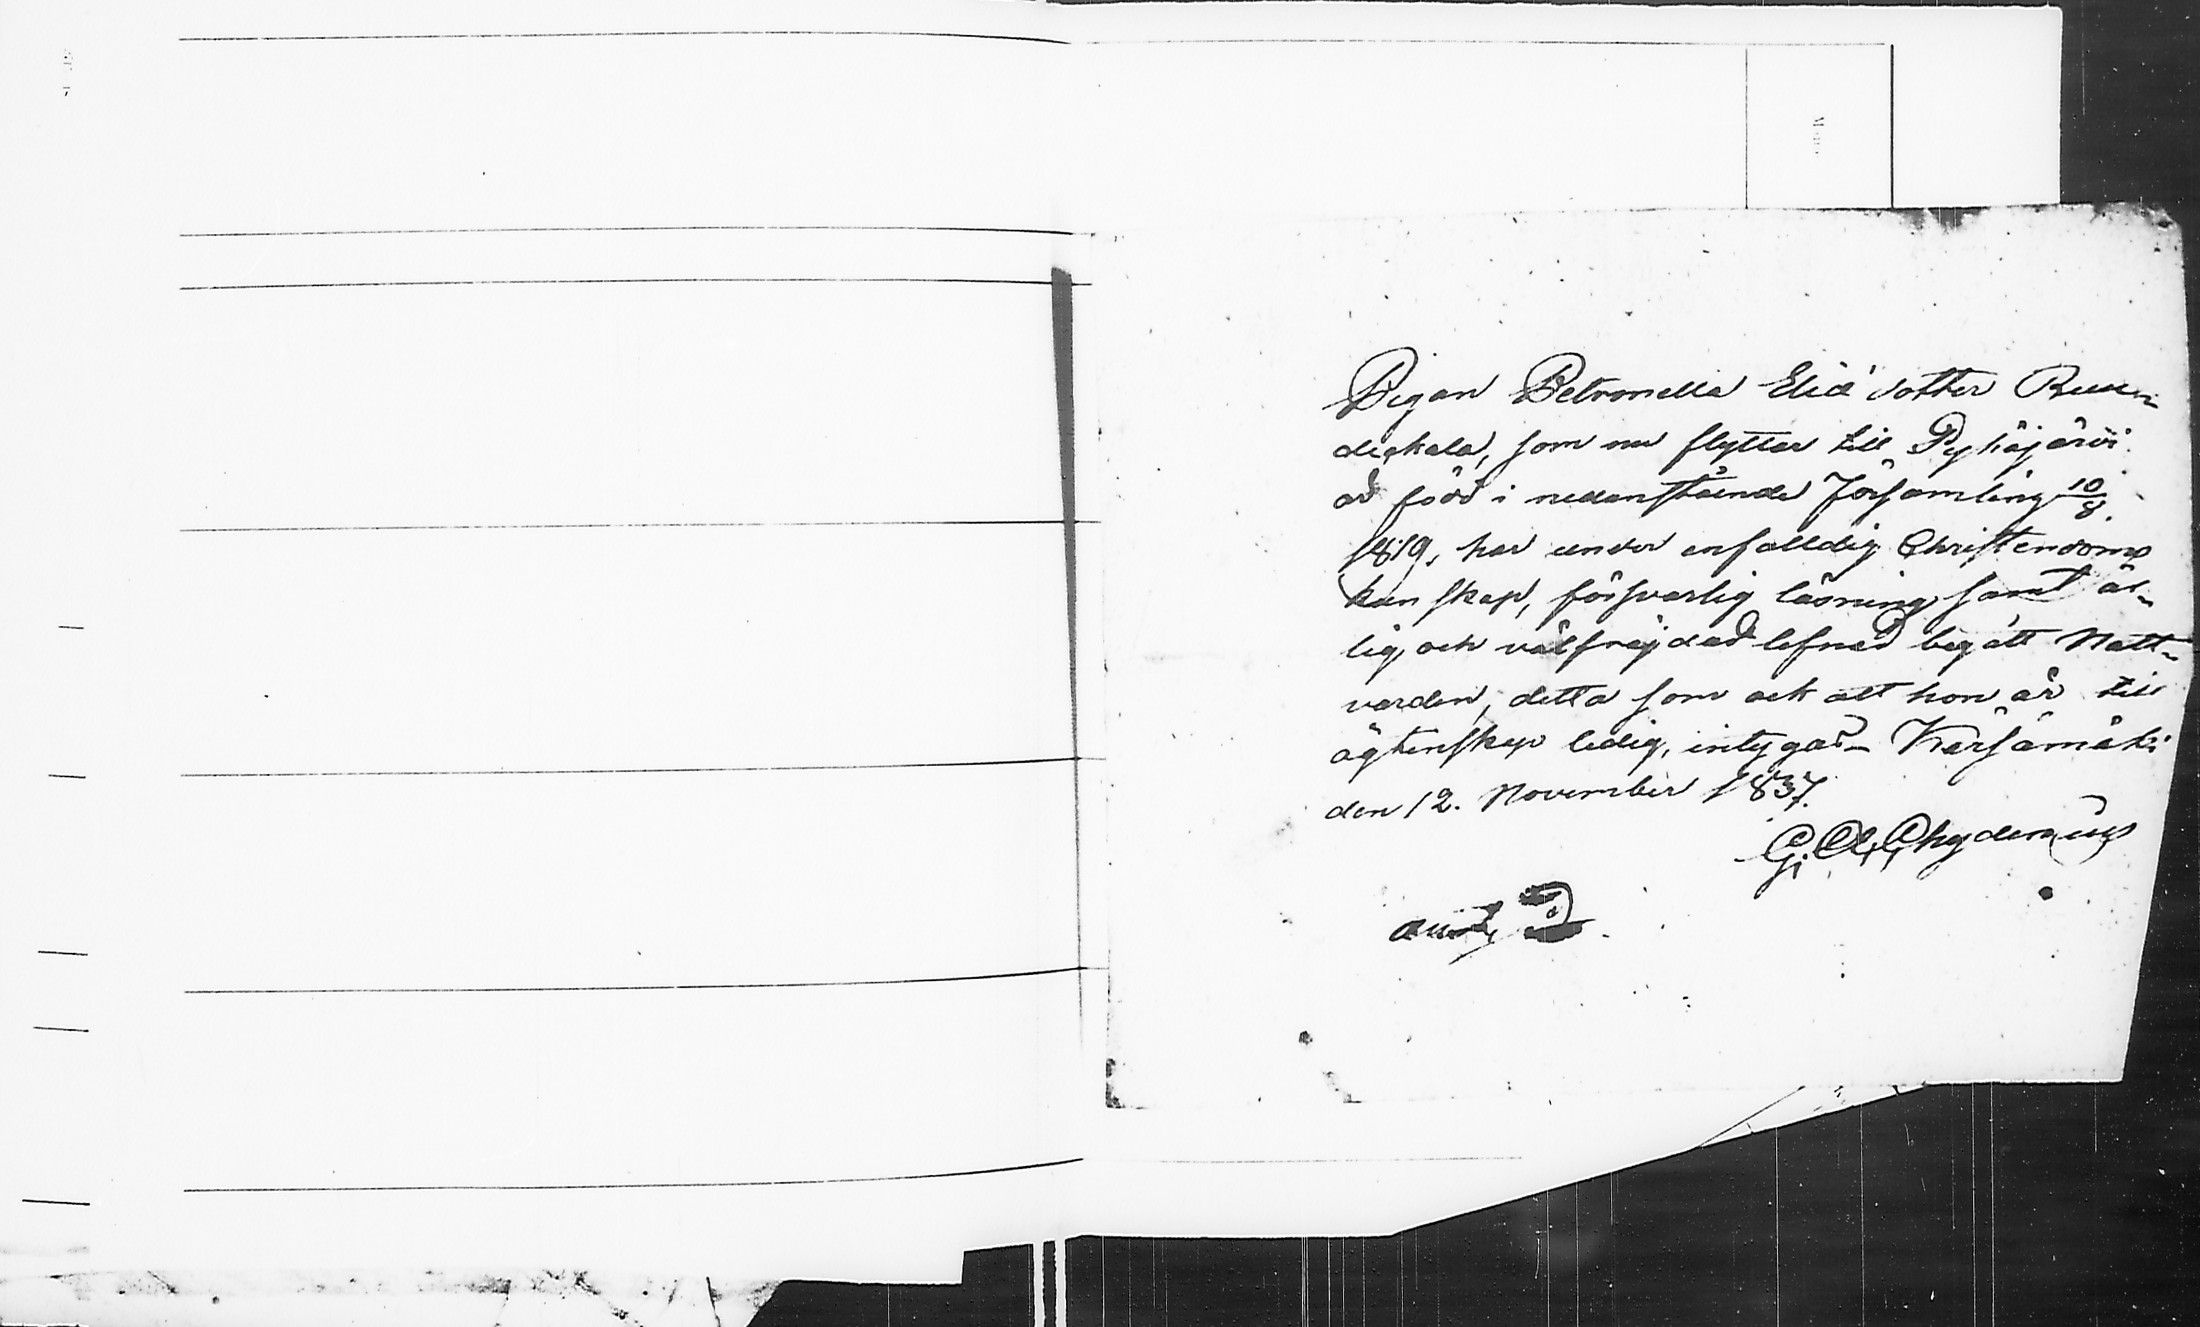 Pigan Petronella Eliæ dotter Ruus-
deskala, som nu flyttar till Pyhäjärvi
är född i nedanstående Församling 10/8
1819, har under enfalldig Christendoms
kunskap, försvarlig läsning samt är-
lig och välfrejdad lefnad begått Natt-
varden, detta som ock att hon är till
ägtenskap ledig, intygar_ Kärsämäki
den 12. November 1837.
G. Ad. Chydenius